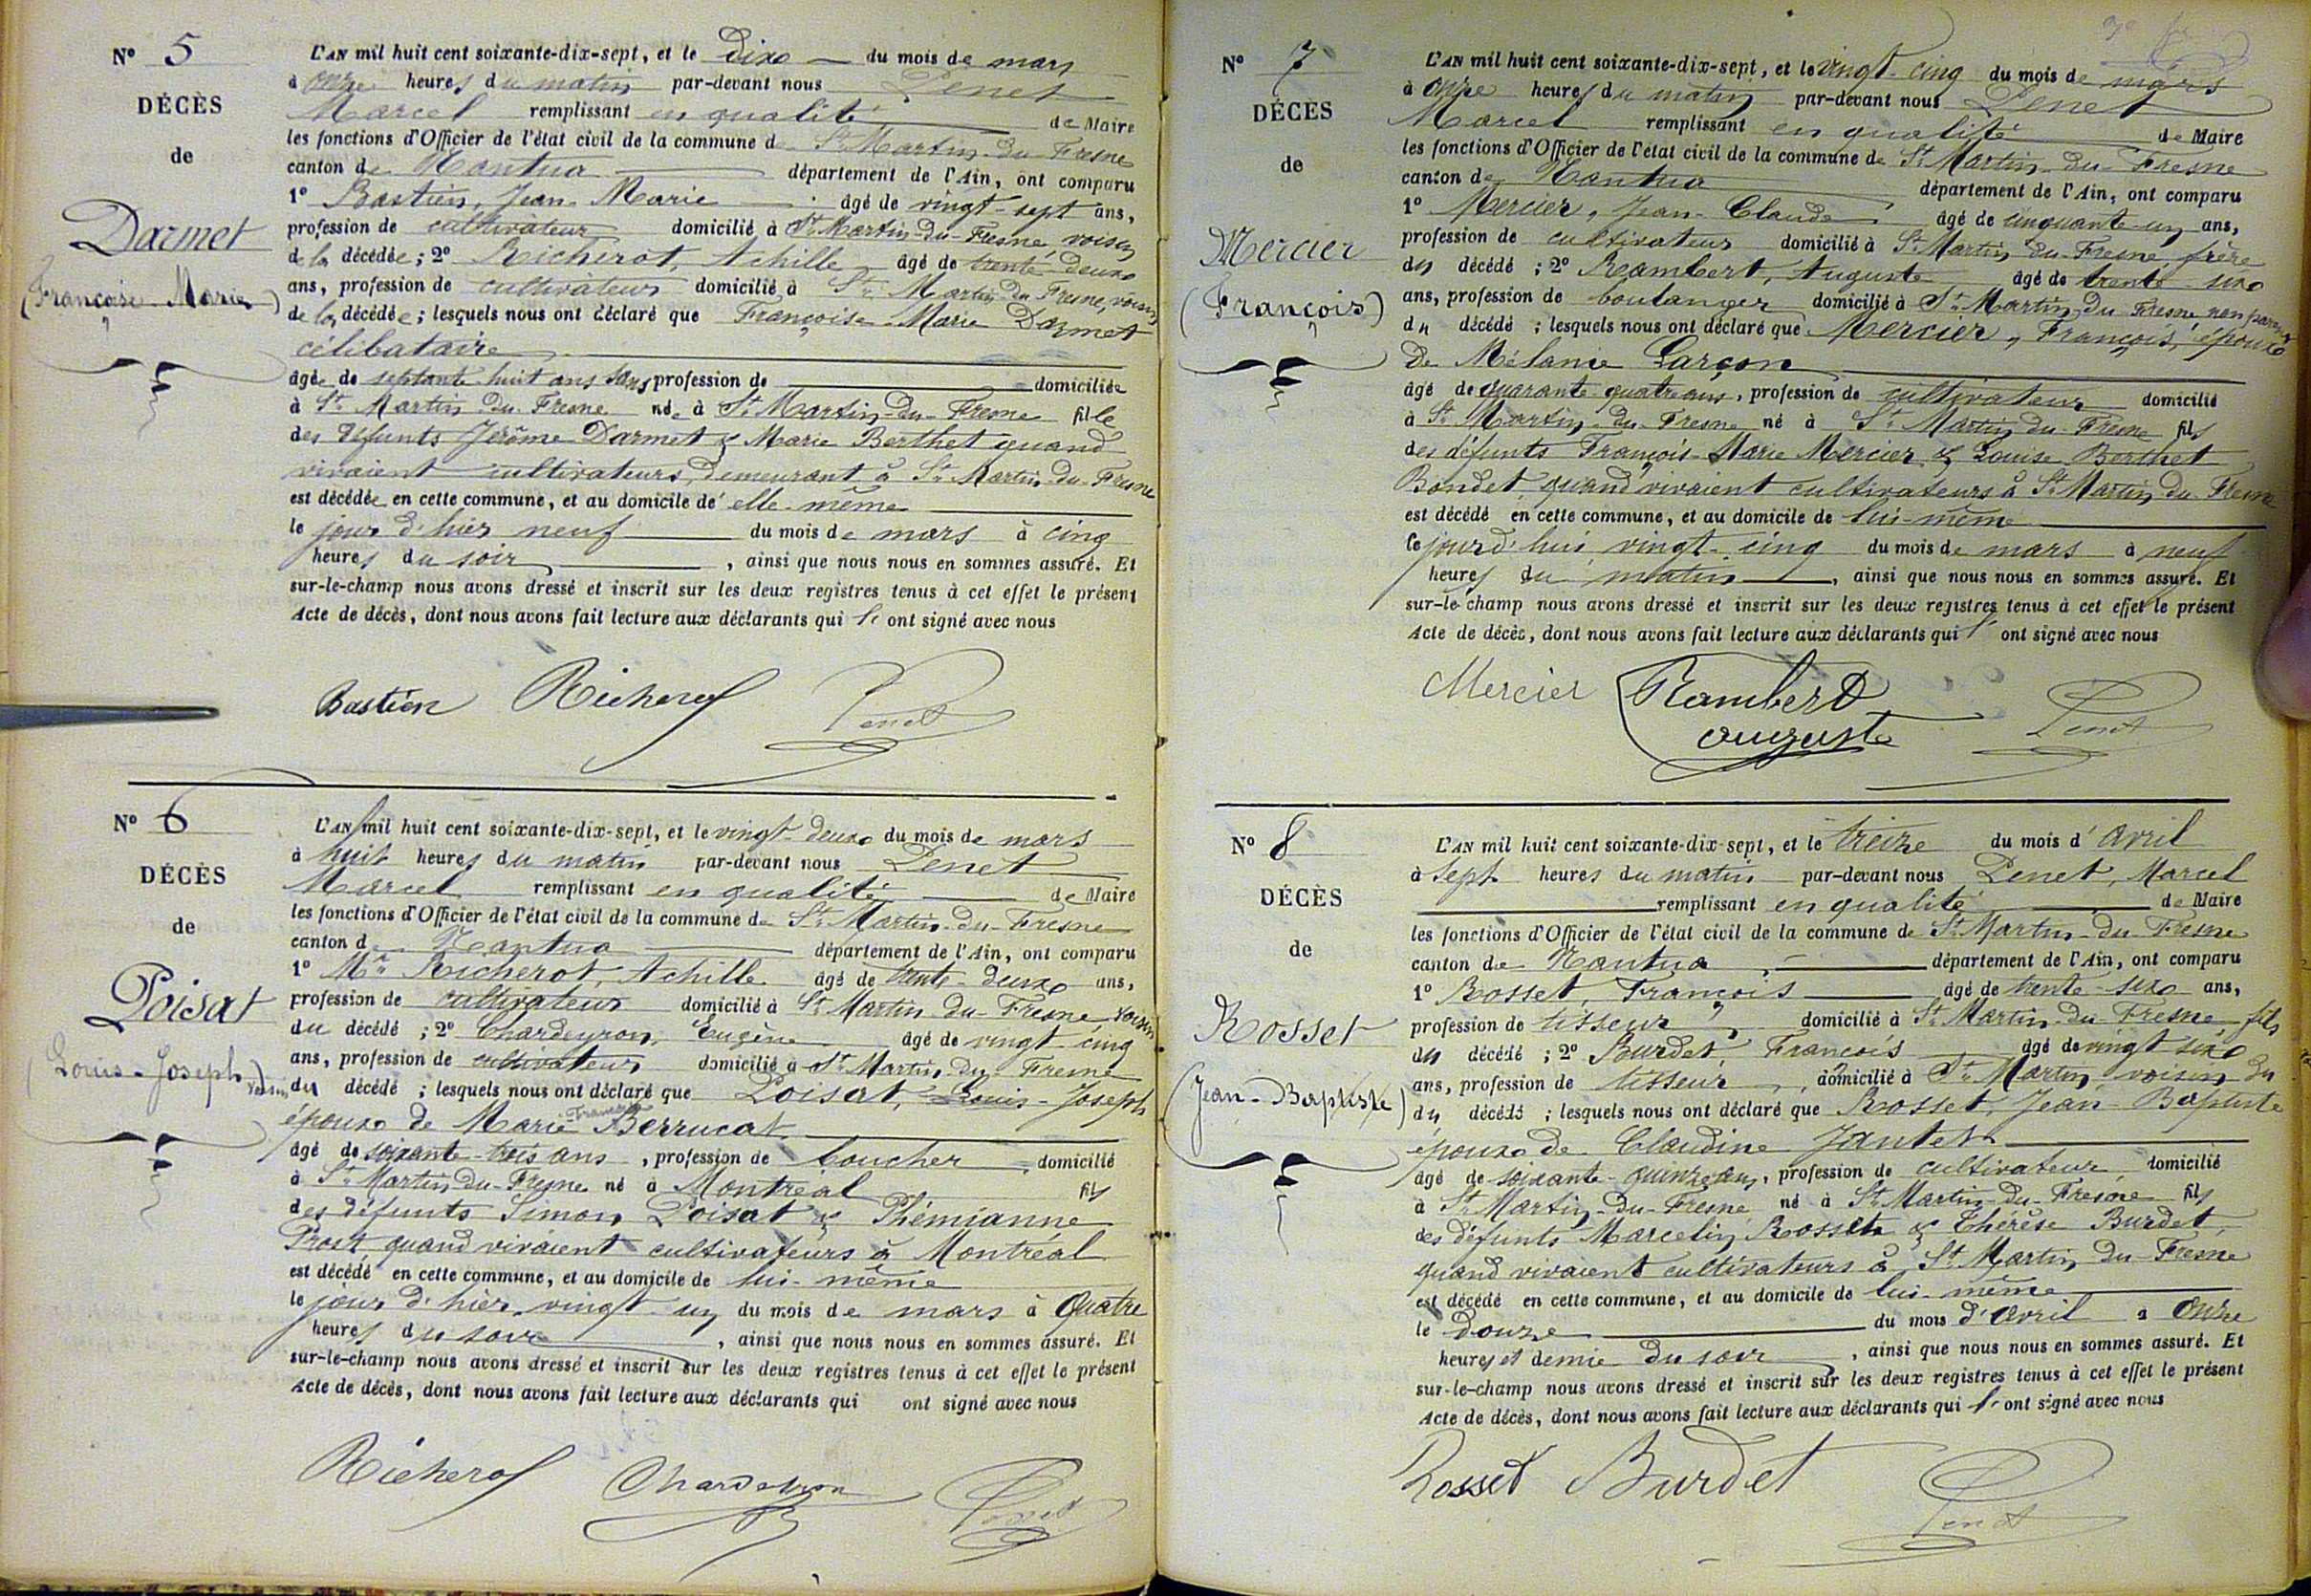 N° 5
DÉCÈS
de
Darmet
(Françoise Marie)
L'AN mil huit cent soixante-dix-sept, et le Dix du mois de mars
à onze heures du matin par-devant nous Penet
Marcel remplissant en qualité de Maire
les fonctions d'Officier de l'état civil de la commune de St Martin-du-Fresne
canton de Nantua département de l'Ain, ont comparu
1° Bastien, Jean-Marie âgé de vingt-sept ans,
profession de cultivateur domicilié à St Martin-du-Fresne, voisin
de la décédée; 2° Richerot, Achille âgé de trente-deux
ans, profession de cultivateur domicilié à St Martin du Fresne, voisin
de la décédée; lesquels nous ont déclaré que Françoise-Marie Darmet
célibataire
âgée de septante huit ans sans profession de domiciliée
à St Martin du Fresne née à St Martin-du-Fresne fille
des défunts Jérôme Darmet & Marie Berthet quand
vivaient cultivateurs, demeurant à St Martin-du-Fresne
est décédée en cette commune, et au domicile de elle-même
le jour d'hier neuf du mois de mars à cinq
heures du soir, ainsi que nous nous en sommes assuré. Et
sur-le-champ nous avons dressé et inscrit sur les deux registres tenus à cet effet le présent
Acte de décès, dont nous avons fait lecture aux déclarants qui l' ont signé avec nous
Bastien Richerot Penet
N° 6
DÉCÈS
de
Poisat
(Louis-Joseph)
L'AN mil huit cent soixante-dix-sept, et le vingt-deux du mois de mars
à huit heures du matin par-devant nous Penet
Marcel remplissant en qualité de Maire
les fonctions d'Officier de l'état civil de la commune de St Martin-du-Fresne
canton de Nantua département de l'Ain, ont comparu
1° Mr Richerot, Achille âgé de trente-deux ans,
profession de cultivateur domicilié à St Martin-du-Fresne voisin
du décédé; 2° Chardeyron, Eugène âgé de vingt-cinq
ans, profession de cultivateur domicilié à St Martin-du-Fresne
voisin du décédé; lesquels nous ont déclaré que Poisat, Louis-Joseph
époux de Marie Berrucat
âgé de soixante-trois ans, profession de boucher, domicilié
à St Martin-du-Fresne né à Montréal fils
des défunts Simon Poisat & Phémianne
Prost, quand vivaient cultivateurs à Montréal
est décédé en cette commune, et au domicile de lui-même
le jour d'hier vingt-un du mois de mars à quatre
heures du soir, ainsi que nous nous en sommes assuré. Et
sur-le-champ nous avons dressé et inscrit sur les deux registres tenus à cet effet le présent
Acte de décès, dont nous avons fait lecture aux déclarants qui ont signé avec nous
Richerot Chardeyron Penet
N° 7
DÉCÈS
de
Mercier
(François)
L'AN mil huit cent soixante-dix-sept, et le vingt-cinq du mois de mars
à onze heures du matin par-devant nous Penet
Marcel remplissant en qualité de Maire
les fonctions d'Officier de l'état civil de la commune de St Martin-du-Fresne
canton de Nantua département de l'Ain, ont comparu
1° Mercier, Jean-Claude âgé de cinquante-un ans,
profession de cultivateur domicilié à St Martin du-Fresne, frère
du décédé; 2° Rambert, Auguste âgé de trente-six
ans, profession de boulanger domicilié à St Martin du Fresne, non parent
du décédé; lesquels nous ont déclaré que Mercier, François, époux
de Mélanie Garçon
âgé de quarante-quatre ans, profession de cultivateur domicilié
à St Martin-du-Fresne né à St Martin du-Fresne fils
des défunts François-Marie Mercier & Louise Berthet
Bondet, quand vivaient cultivateurs à St Martin du Fresne
est décédé en cette commune, et au domicile de lui-même
le jourd'hui vingt-cinq du mois de mars à neuf
heures du matin, ainsi que nous nous en sommes assuré. Et
sur-le-champ nous avons dressé et inscrit sur les deux registres tenus à cet effet le présent
Acte de décès, dont nous avons fait lecture aux déclarants qui l' ont signé avec nous
Mercier Rambert Penet
auguste
N° 8
DÉCÈS
de
Rosset
(Jean-Baptiste)
L'AN mil huit cent soixante-dix-sept, et le treize du mois d'avril
à sept heures du matin par-devant nous Penet, Marcel
remplissant en qualité de Maire
les fonctions d'Officier de l'état civil de la commune de St Martin-du-Fresne
canton de Nantua département de l'Ain, ont comparu
1° Rosset, François âgé de trente-six ans,
profession de tisseur domicilié à St Martin-du-Fresne, fils
du décédé; 2° Burdet, François âgé de vingt six
ans, profession de tisseur, domicilié à St Martin, voisin du
du décédé; lesquels nous ont déclaré que Rosset, Jean-Baptiste
époux de Claudine Jantet
âgé de soixante-quinze ans, profession de cultivateur, domicilié
à St Martin-du-Fresne né à St Martin-du-Fresne fils
des défunts Marcelin Rosset & Thérèse Burdet,
quand vivaient cultivateurs à St Martin du-Fresne
est décédé en cette commune, et au domicile de lui-même
le douze du mois d'avril à onze
heures et demie du soir, ainsi que nous nous en sommes assuré. Et
sur-le-champ nous avons dressé et inscrit sur les deux registres tenus à cet effet le présent
Acte de décès, dont nous avons fait lecture aux déclarants qui l' ont signé avec nous
Rosset Burdet Penet